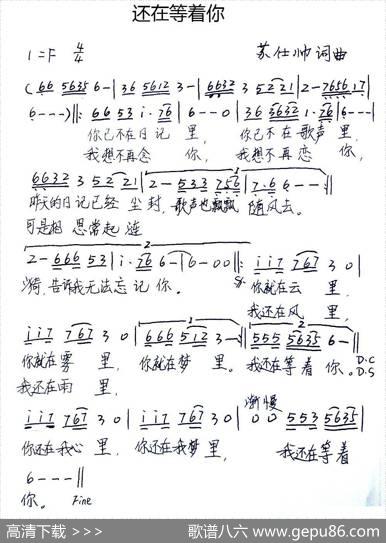 还在等着你
1=F 4/4 苏仕帅 词曲
( 66 5635 6-| 36 5612 3-| 6632 3 5221| 2-765617|
6---)‖: 66 53 i·76| 6--0| 36 3632 1·76| 6---|
你已不在日记里, 你已不在歌声里,
我想不再念你, 我想不再恋你,
6632 3 5221| 2-533756| 7·66--:‖
昨天的日记已经尘封,歌声也飘飘随风去。
可是相思常起涟
2-66653| i·766-| 6-00‖: ii7 767 3 0|
漪,告诉我无法忘记你。 你就在云里,
我还在风里,
ii7 767 3 0| 666 512 3-:‖ 555 5635 6-|
你就在雾里, 你就在梦里。 我还在等着你。 D.C
我还在雨里, D.S
渐慢
ii7 767 3 0| ii7 767 3 0| 00 553 5635|
你还在我心里, 你还在我梦里, 我还在等着
6---‖
你。 Fine
高清下载 >>> 歌谱八六 www.gepu86.com